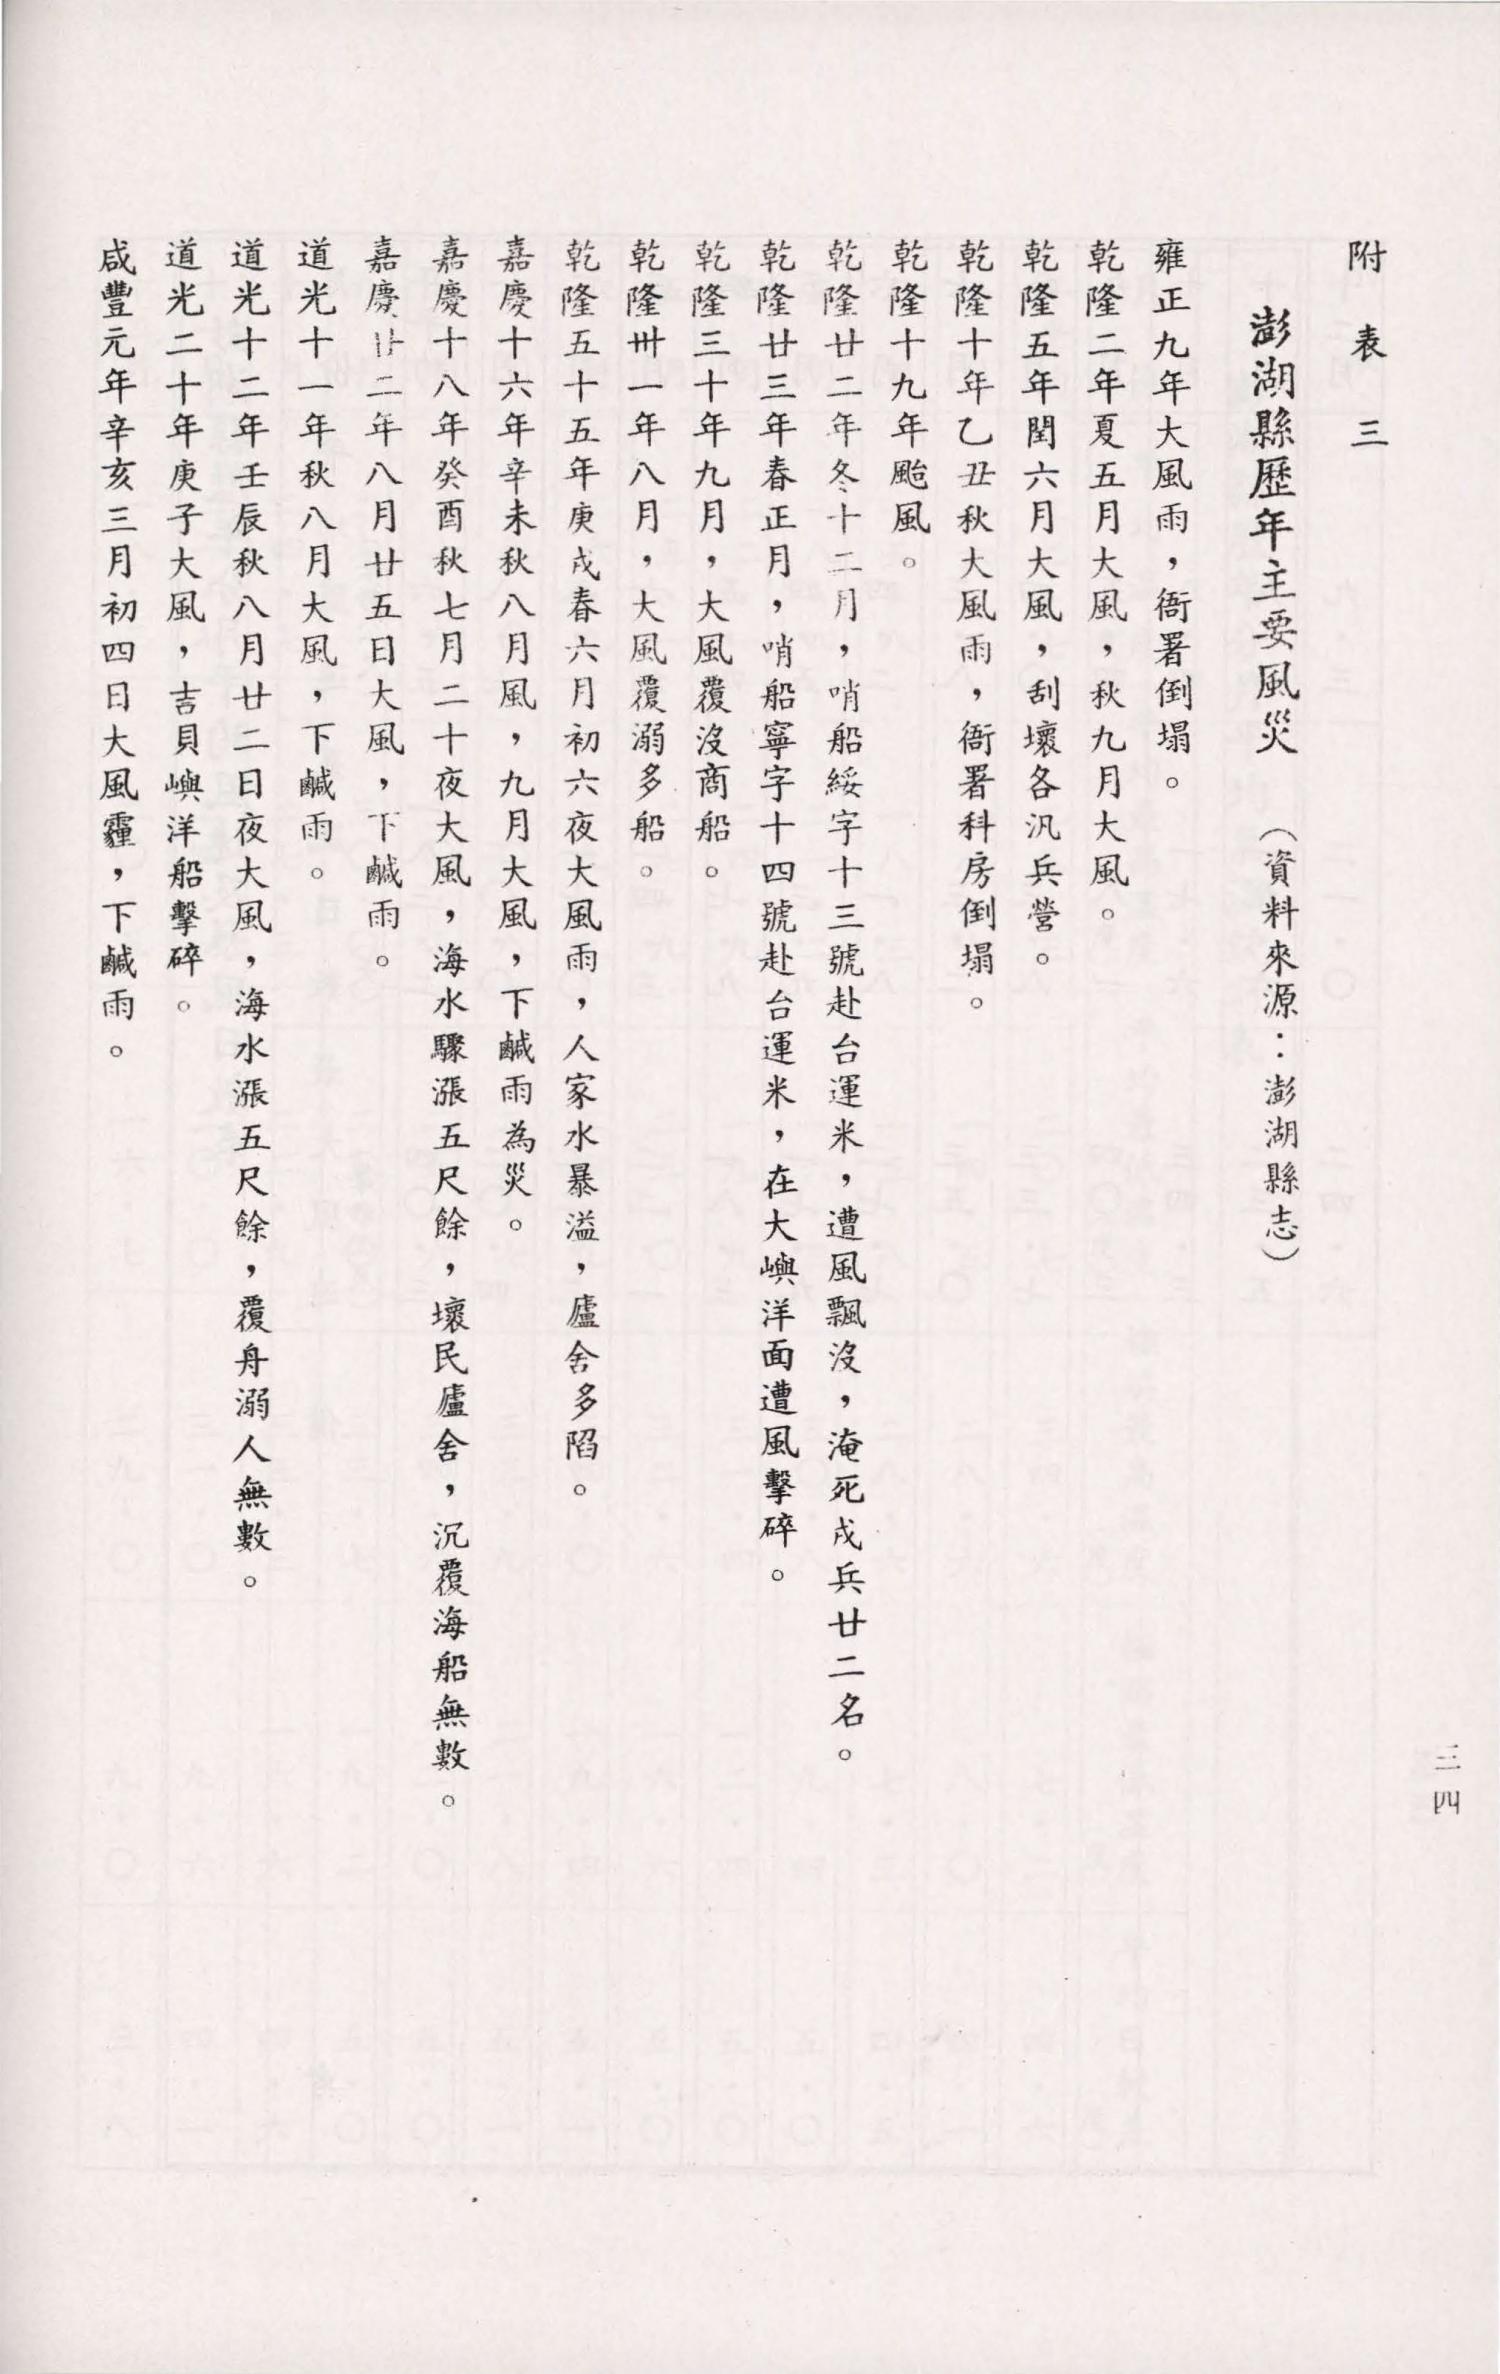 附表三
澎湖縣歷年主要風災（資料來源：澎湖縣志）
雍正九年大風雨，衙署倒塌。
乾隆二年夏五月大風，秋九月大風。
乾隆五年閏六月大風，刮壞各汛兵營。
乾隆十年乙丑秋大風雨，衙署科房倒塌。
乾隆十九年颱風。
乾隆廿二年冬十二月，哨船綏字十三號赴台運米，遭風飄沒，淹死戍兵廿二名。
乾隆廿三年春正月，哨船寧字十四號赴台運米，在大嶼洋面遭風擊碎。
乾隆三十年九月，大風覆沒商船。
乾隆卅一年八月，大風覆溺多船。
乾隆五十五年庚戌春六月初六夜大風雨，人家水暴溢，廬舍多陷。
嘉慶十六年辛未秋八月風，九月大風，下鹹雨為災。
嘉慶十八年癸酉秋七月二十夜大風，海水驟漲五尺餘，壞民廬舍，沉覆海船無數。
嘉慶廿二年八月廿五日大風，下鹹雨。
道光十一年秋八月大風，下鹹雨。
道光十二年壬辰秋八月廿二日夜大風，海水漲五尺餘，覆舟溺人無數。
道光二十年庚子大風，吉貝嶼洋船擊碎。
咸豐元年辛亥三月初四日大風霾，下鹹雨。
三四